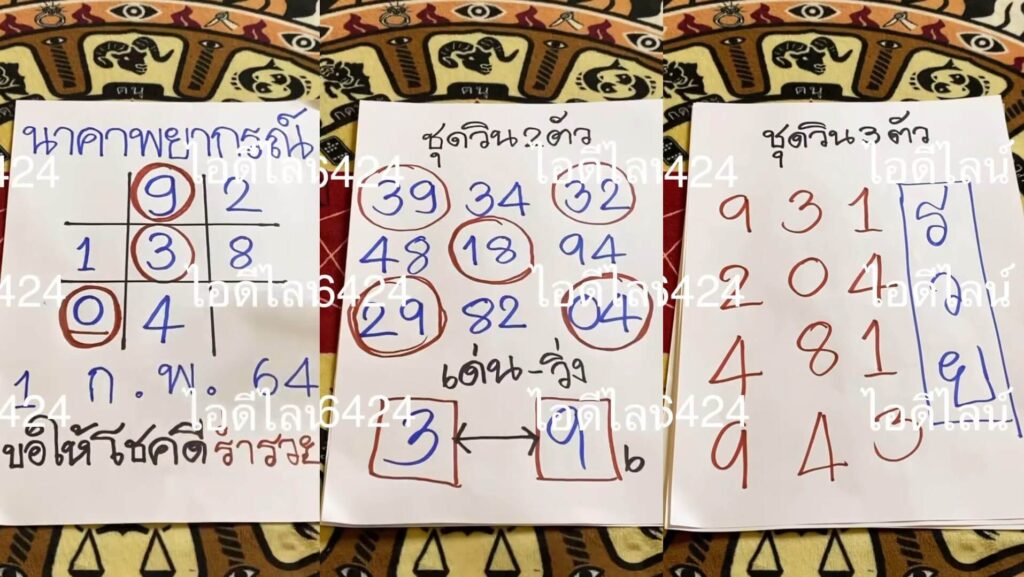 นาคาพยากรณ์
9 2
1 3 8
0 4
1 ก.พ. 64
ขอให้โชคดี ร่ำรวย
ชุดวิน 2 ตัว
39 34 32
48 18 94
29 82 04
เด่น - วิ่ง
3 ↔ 9 6
ชุดวิน 3 ตัว
9 3 1
2 0 4
4 8 1
9 4
รวย
ธนู
ธนู
ธนู
ไอดีไลน์
6424